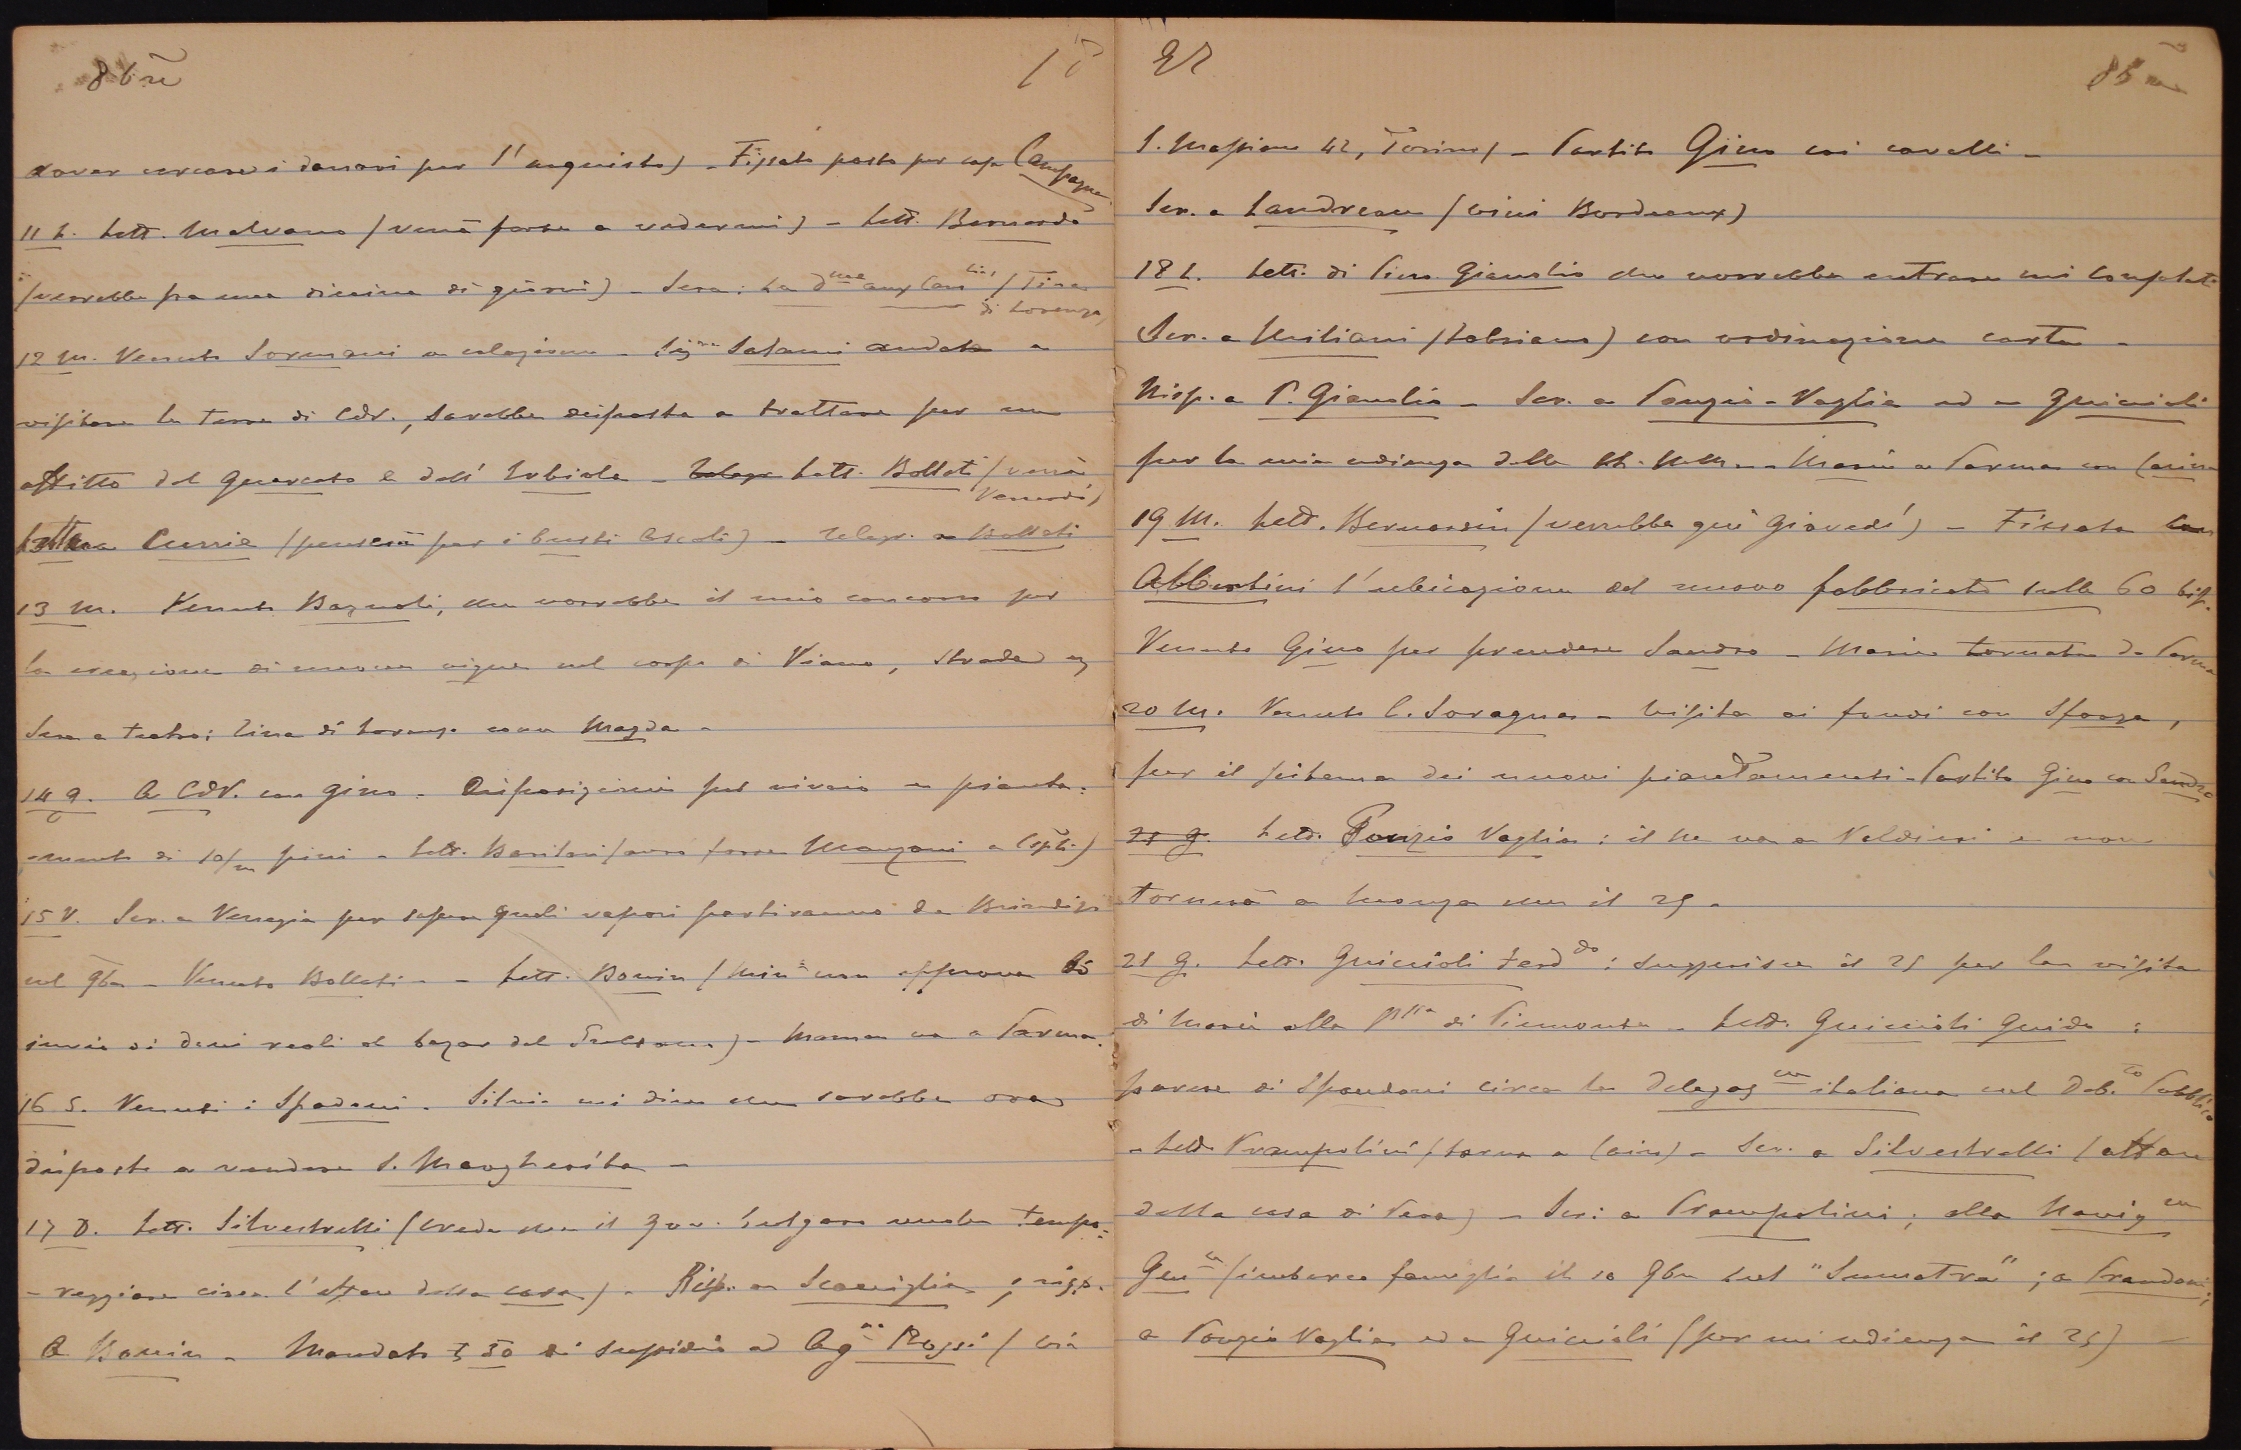 8bre
dover cercare i danari per l'acquisto) - Fissato posto per casa Campagna
11 L. Lett. Malvano (verrà forse a vedermi) - Lett. Bernardo
(verrebbe fra una diecina di giorni) - Sera: La Dme aux Camlias (Tina
di Lorenzo)
12 M. Venuto Sormani a colazione - Sig. Salami andato a
visitare le terre di CdV., sarebbe disposto a trattare per un
affitto del Querceto e dell' - Lett. Bollati (verrà
Venerdì)
Lettera Currie (penserà per i busti Ascoli) - Telegr. a Bollati
13 M. Venuto Bagnoli, che vorrebbe il mio concorso per
la creazione di nuove vigne nel corpo di Viano, strade
Sera a teatro: Tina di Lorenzo come Magda -
14 G. A CdV. con Gino. Disposizioni pel vivaio e pianta=
=mento di 10/m pini - Lett. Barilari (avrò forse Manzoni a Cospli.)
15 V. Scr. a Venezia per sapere quali vapori partiranno da Brindisi
nel 9bre - Venuto Bollati - - Lett. Bonin (Min non approva lo
invio di doni reali al bazar del Sultano) - Maman va a Parma.
16 S. Venuti: Spadoni. Silvio mi dice che sarebbe ora
disposto a vendere S. Margherita -
17 D. Lett. Silvestrelli (crede che il gov. bulgaro voglia tempo=
=reggiare circa l'affare della casa) - Risp. a Scaniglia; risp.
a Bonin - Mandato £ 50 di sussidio ad Ag Rossi (via
S. Massimo 42, Torino) - Partito Gino coi cavalli -
Scr. a Landreau (vini Bordeaux)
18 L. Lett. di Piero Gianolio che vorrebbe entrare nei Consolati
Scr. a Miliani (Fabriano) con ordinazione carta -
Risp. a P. Gianolio - Scr. a Ponzio-Vaglia ed a Guiccioli
per la mia udienza dalle LL. MM. - Marie a Parma con
19 M. Lett. Bernardin (verrebbe qui Giovedí) - Fissata con
Albertini l'ubicazione del nuovo fabbricato sulle 60 bif.
Venuto Gino per prendere Sandro - Marie tornata da Parma
20 M. Venuto C. Soragna - Visita ai fondi con Sforza,
per il sistema dei nuovi piantamenti - Partito Gino con Sandro
21 G. Lett. Ponzio Vaglia: il Re va a Valdieri e non
tornerà a Monza che il 25.
21 G. Lett. Guiccioli Ferddo: suggerisce il 25 per la visita
di Marie alla Pssa di Piemonte - Lett. Guiccioli Guido:
parere di Spandoni circa la Delegazne italiana nel Deb.to Pubblico
- Lett. Prampolini (torna a Cairo) - Scr. a Silvestrelli (affare
della casa di Pera) - Scr: a Prampolini; alla Navigne
Genle (imbarco famiglia il 10 9bre sul "Sumatra"; a Prandoni;
a Ponzio Vaglia ed a Guiccioli (per mi udienza il 25) -